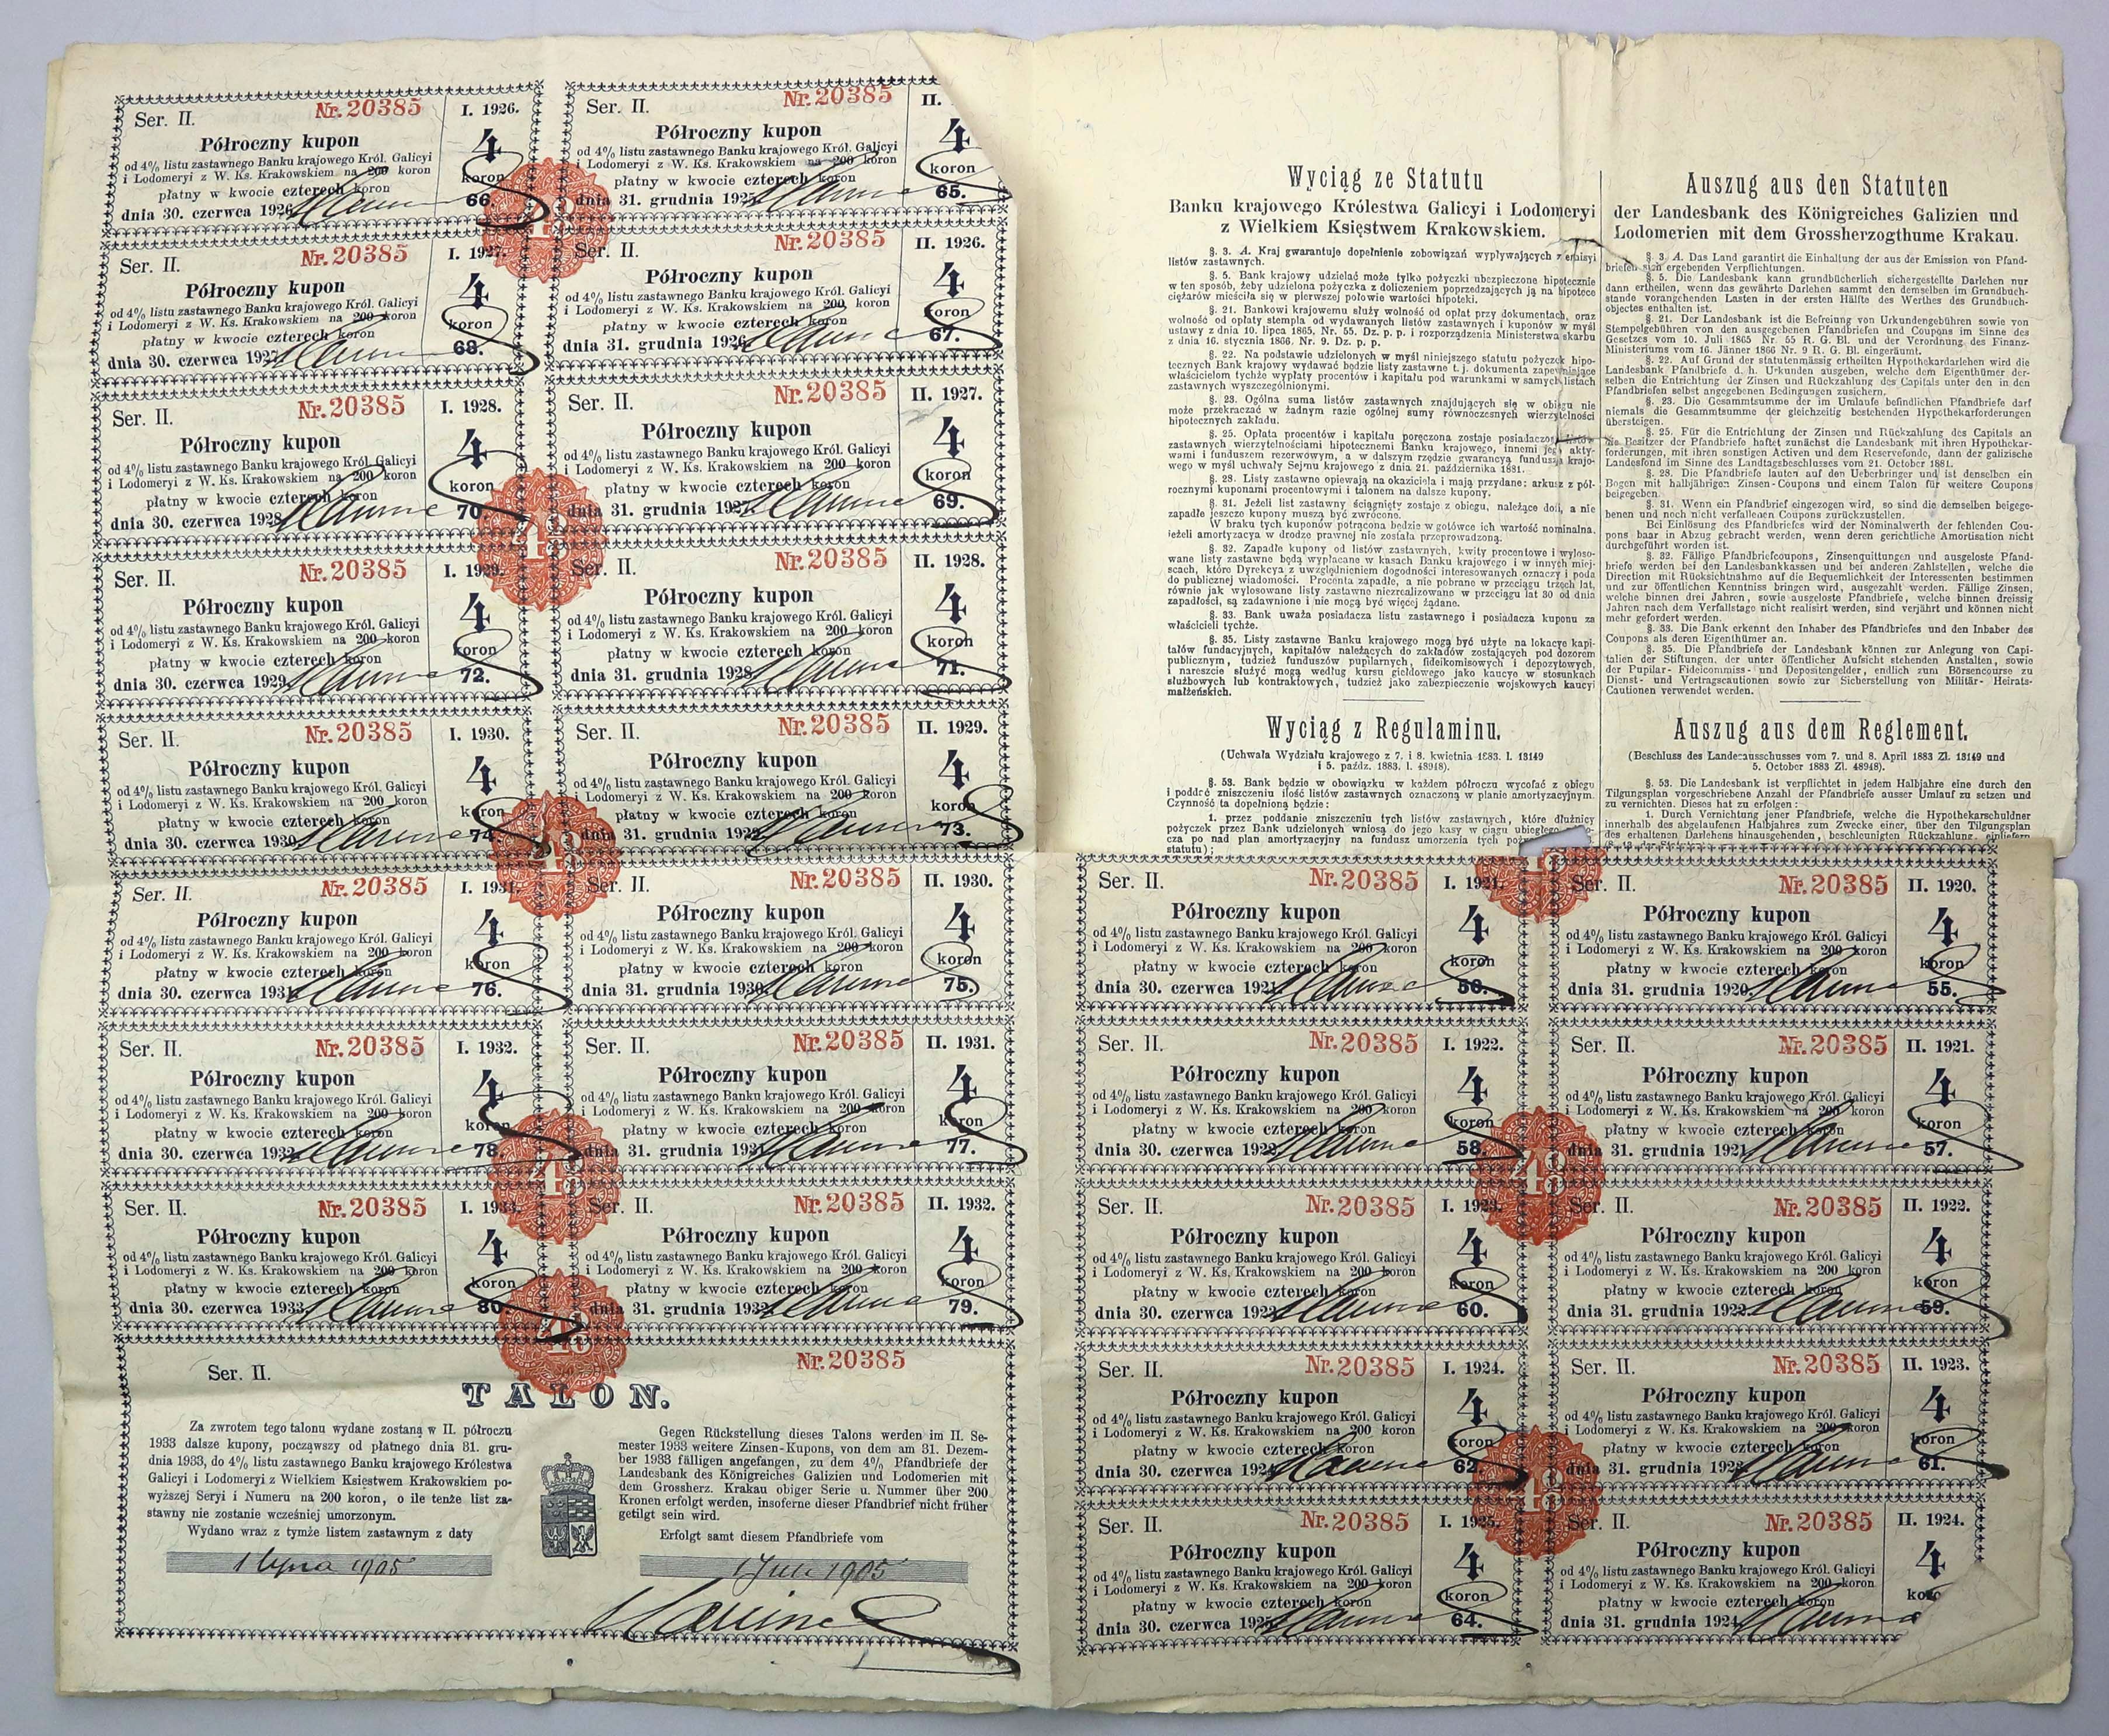 Ser. II. Nr. 20385 I. 1926.
Półroczny kupon
od 4% listu zastawnego Banku krajowego Król. Galicyi
i Lodomeryi z W. Ks. Krakowskiem na 200 koron
płatny w kwocie czterech koron
dnia 30. czerwca 1926
4
koron
66.
Ser. II. Nr. 20385 II.
Półroczny kupon
od 4% listu zastawnego Banku krajowego Król. Galicyi
i Lodomeryi z W. Ks. Krakowskiem na 200 koron
płatny w kwocie czterech koron
dnia 31. grudnia 1925
4
koron
65.
Ser. II. Nr. 20385 I. 1927.
Półroczny kupon
od 4% listu zastawnego Banku krajowego Król. Galicyi
i Lodomeryi z W. Ks. Krakowskiem na 200 koron
płatny w kwocie czterech koron
dnia 30. czerwca 1927
4
koron
68.
Ser. II. Nr. 20385 II. 1926.
Półroczny kupon
od 4% listu zastawnego Banku krajowego Król. Galicyi
i Lodomeryi z W. Ks. Krakowskiem na 200 koron
płatny w kwocie czterech koron
dnia 31. grudnia 1926
4
koron
67.
Ser. II. Nr. 20385 I. 1928.
Półroczny kupon
od 4% listu zastawnego Banku krajowego Król. Galicyi
i Lodomeryi z W. Ks. Krakowskiem na 200 koron
płatny w kwocie czterech koron
dnia 30. czerwca 1928
4
koron
70.
Ser. II. Nr. 20385 II. 1927.
Półroczny kupon
od 4% listu zastawnego Banku krajowego Król. Galicyi
i Lodomeryi z W. Ks. Krakowskiem na 200 koron
płatny w kwocie czterech koron
dnia 31. grudnia 1927
4
koron
69.
Ser. II. Nr. 20385 I. 1929.
Półroczny kupon
od 4% listu zastawnego Banku krajowego Król. Galicyi
i Lodomeryi z W. Ks. Krakowskiem na 200 koron
płatny w kwocie czterech koron
dnia 30. czerwca 1929
4
koron
72.
Ser. II. Nr. 20385 II. 1928.
Półroczny kupon
od 4% listu zastawnego Banku krajowego Król. Galicyi
i Lodomeryi z W. Ks. Krakowskiem na 200 koron
płatny w kwocie czterech koron
dnia 31. grudnia 1928
4
koron
71.
Ser. II. Nr. 20385 I. 1930.
Półroczny kupon
od 4% listu zastawnego Banku krajowego Król. Galicyi
i Lodomeryi z W. Ks. Krakowskiem na 200 koron
płatny w kwocie czterech koron
dnia 30. czerwca 1930
4
koron
74.
Ser. II. Nr. 20385 II. 1929.
Półroczny kupon
od 4% listu zastawnego Banku krajowego Król. Galicyi
i Lodomeryi z W. Ks. Krakowskiem na 200 koron
płatny w kwocie czterech koron
dnia 31. grudnia 1929
4
koron
73.
Ser. II. Nr. 20385 I. 1931.
Półroczny kupon
od 4% listu zastawnego Banku krajowego Król. Galicyi
i Lodomeryi z W. Ks. Krakowskiem na 200 koron
płatny w kwocie czterech koron
dnia 30. czerwca 1931
4
koron
76.
Ser. II. Nr. 20385 II. 1930.
Półroczny kupon
od 4% listu zastawnego Banku krajowego Król. Galicyi
i Lodomeryi z W. Ks. Krakowskiem na 200 koron
płatny w kwocie czterech koron
dnia 31. grudnia 1930
4
koron
75.
Ser. II. Nr. 20385 I. 1932.
Półroczny kupon
od 4% listu zastawnego Banku krajowego Król. Galicyi
i Lodomeryi z W. Ks. Krakowskiem na 200 koron
płatny w kwocie czterech koron
dnia 30. czerwca 1932
4
koron
78.
Ser. II. Nr. 20385 II. 1931.
Półroczny kupon
od 4% listu zastawnego Banku krajowego Król. Galicyi
i Lodomeryi z W. Ks. Krakowskiem na 200 koron
płatny w kwocie czterech koron
dnia 31. grudnia 1931
4
koron
77.
Ser. II. Nr. 20385 I. 1933.
Półroczny kupon
od 4% listu zastawnego Banku krajowego Król. Galicyi
i Lodomeryi z W. Ks. Krakowskiem na 200 koron
płatny w kwocie czterech koron
dnia 30. czerwca 1933
4
koron
80.
Ser. II. Nr. 20385 II. 1932.
Półroczny kupon
od 4% listu zastawnego Banku krajowego Król. Galicyi
i Lodomeryi z W. Ks. Krakowskiem na 200 koron
płatny w kwocie czterech koron
dnia 31. grudnia 1932
4
koron
79.
Ser. II. Nr. 20385
TALON.
Za zwrotem tego talonu wydane zostaną w II. półroczu
1933 dalsze kupony, począwszy od płatnego dnia 31. gru-
dnia 1933, do 4% listu zastawnego Banku krajowego Królestwa
Galicyi i Lodomeryi z Wielkiem Księstwem Krakowskiem po-
wyższej Seryi i Numeru na 200 koron, o ile tenże list za-
stawny nie zostanie wcześniej umorzonym.
Wydano wraz z tymże listem zastawnym z daty
1 lipca 1905
Gegen Rückstellung dieses Talons werden im II. Se-
mester 1933 weitere Zinsen-Kupons, von dem am 31. Dezem-
ber 1933 fälligen angefangen, zu dem 4% Pfandbriefe der
Landesbank des Königreiches Galizien und Lodomerien mit
dem Grossherz. Krakau obiger Serie u. Nummer über 200
Kronen erfolgt werden, insoferne dieser Pfandbrief nicht früher
getilgt sein wird.
Erfolgt samt diesem Pfandbriefe vom
1 Juli 1905
Wyciąg ze Statutu
Banku krajowego Królestwa Galicyi i Lodomeryi
z Wielkiem Księstwem Krakowskiem.
§. 3. A. Kraj gwarantuje dopełnienie zobowiązań wypływających z emisyi
listów zastawnych.
§. 5. Bank krajowy udzielać może tylko pożyczki ubezpieczone hipotecznie
w ten sposób, żeby udzielona pożyczka z doliczeniem poprzedzających ją na hipotece
ciężarów mieściła się w pierwszej połowie wartości hipoteki.
§. 21. Bankowi krajowemu służy wolność od opłat przy dokumentach, oraz
wolność od opłaty stempla od wydawanych listów zastawnych i kuponów w myśl
ustawy z dnia 10. lipca 1865, Nr. 55. Dz. p. p. i rozporządzenia Ministerstwa skarbu
z dnia 16. stycznia 1866. Nr. 9. Dz. p. p.
§. 22. Na podstawie udzielonych w myśl niniejszego statutu pożyczek hipo-
tecznych Bank krajowy wydawać będzie listy zastawne t. j. dokumenta zapewniające
właścicielom tychże wypłaty procentów i kapitału pod warunkami w samych listach
zastawnych wyszczególnionymi.
§. 23. Ogólna suma listów zastawnych znajdujących się w obiegu nie
może przekraczać w żadnym razie ogólnej sumy równoczesnych wierzytelności
hipotecznych zakładu.
§. 25. Opłata procentów i kapitału poręczona zostaje posiadaczom listów
zastawnych wierzytelnościami hipotecznemi Banku krajowego, innemi jego akty-
wami i funduszem rezerwowym, a w dalszym rzędzie gwarancyą funduszu krajo-
wego w myśl uchwały Sejmu krajowego z dnia 21. października 1881.
§. 28. Listy zastawne opiewają na okaziciela i mają przydane: arkusz z pół-
rocznymi kuponami procentowymi i talonem na dalsze kupony.
§. 31. Jeżeli list zastawny ściągnięty zostaje z obiegu, należące doń, a nie
zapadłe jeszcze kupony muszą być zwrócone.
W braku tych kuponów potrąconą będzie w gotówce ich wartość nominalna,
jeżeli amortyzacya w drodze prawnej nie została przeprowadzoną.
§. 32. Zapadłe kupony od listów zastawnych, kwity procentowe i wyloso-
wane listy zastawne będą wypłacane w kasach Banku krajowego i w innych miej-
scach, które Dyrekcya z uwzględnieniem dogodności interesowanych oznaczy i poda
do publicznej wiadomości. Procenta zapadłe, a nie pobrane w przeciągu trzech lat,
równie jak wylosowane listy zastawne niezrealizowane w przeciągu lat 30 od dnia
zapadłości, są zadawnione i nie mogą być więcej żądane.
§. 33. Bank uważa posiadacza listu zastawnego i posiadacza kuponu za
właścicieli tychże.
§. 35. Listy zastawne Banku krajowego mogą być użyte na lokacye kapi-
tałów fundacyjnych, kapitałów należących do zakładów zostających pod dozorem
publicznym, tudzież funduszów pupilarnych, fideikomisowych i depozytowych,
i nareszcie służyć mogą według kursu giełdowego jako kaucye w stosunkach
służbowych lub kontraktowych, tudzież jako zabezpieczenie wojskowych kaucyj
małżeńskich.
Wyciąg z Regulaminu.
(Uchwała Wydziału krajowego z 7. i 8. kwietnia 1883. l. 13149
i 5. paźdz. 1883. l. 48948).
§. 53. Bank będzie w obowiązku w każdem półroczu wycofać z obiegu
i poddać zniszczeniu ilość listów zastawnych oznaczoną w planie amortyzacyjnym.
Czynność ta dopełnioną będzie:
1. przez poddanie zniszczeniu tych listów zastawnych, które dłużnicy
pożyczek przez Bank udzielonych wniosą do jego kasy w ciągu ubiegłego
cza po nad plan amortyzacyjny na fundusz umorzenia tych
statutu);
Auszug aus den Statuten
der Landesbank des Königreiches Galizien und
Lodomerien mit dem Grossherzogthume Krakau.
§. 3 A. Das Land garantirt die Einhaltung der aus der Emission von Pfand-
briefen sich ergebenden Verpflichtungen.
§. 5. Die Landesbank kann grundbücherlich sichergestellte Darlehen nur
dann ertheilen, wenn das gewährte Darlehen sammt den demselben im Grundbuch-
stande vorangehenden Lasten in der ersten Hälfte des Werthes des Grundbuch-
objectes enthalten ist.
§. 21. Der Landesbank ist die Befreiung von Urkundengebühren sowie von
Stempelgebühren von den ausgegebenen Pfandbriefen und Coupons im Sinne des
Gesetzes vom 10. Juli 1865 Nr. 55 R. G. Bl. und der Verordnung des Finanz-
Ministeriums vom 16. Jänner 1866 Nr. 9 R. G. Bl. eingeräumt.
§. 22. Auf Grund der statutenmässig ertheilten Hypothekardarlehen wird die
Landesbank Pfandbriefe d. h. Urkunden ausgeben, welche dem Eigenthümer der-
selben die Entrichtung der Zinsen und Rückzahlung des Capitals unter den in den
Pfandbriefen selbst angegebenen Bedingungen zusichern.
§. 23. Die Gesammtsumme der im Umlaufe befindlichen Pfandbriefe darf
niemals die Gesammtsumme der gleichzeitig bestehenden Hypothekarforderungen
übersteigen.
§. 25. Für die Entrichtung der Zinsen und Rückzahlung des Capitals an
die Besitzer der Pfandbriefe haftet zunächst die Landesbank mit ihren Hypothekar-
forderungen, mit ihren sonstigen Activen und dem Reservefonde, dann der galizische
Landesfond im Sinne des Landtagsbeschlusses vom 21. October 1881.
§. 28. Die Pfandbriefe lauten auf den Ueberbringer und ist denselben ein
Bogen mit halbjährigen Zinsen-Coupons und einem Talon für weitere Coupons
beigegeben.
§. 31. Wenn ein Pfandbrief eingezogen wird, so sind die demselben beigege-
benen und noch nicht verfallenen Coupons zurückzustellen.
Bei Einlösung des Pfandbriefes wird der Nominalwerth der fehlenden Cou-
pons baar in Abzug gebracht werden, wenn deren gerichtliche Amortisation nicht
durchgeführt worden ist.
§. 32. Fällige Pfandbriefcoupons, Zinsenquittungen und ausgeloste Pfand-
briefe werden bei den Landesbankkassen und bei anderen Zahlstellen, welche die
Direction mit Rücksichtnahme auf die Bequemlichkeit der Interessenten bestimmen
und zur öffentlichen Kenntniss bringen wird, ausgezahlt werden. Fällige Zinsen,
welche binnen drei Jahren, sowie ausgeloste Pfandbriefe, welche binnen dreissig
Jahren nach dem Verfallstage nicht realisirt werden, sind verjährt und können nicht
mehr gefordert werden.
§. 33. Die Bank erkennt den Inhaber des Pfandbriefes und den Inhaber des
Coupons als deren Eigenthümer an.
§. 35. Die Pfandbriefe der Landesbank können zur Anlegung von Capi-
talien der Stiftungen, der unter öffentlicher Aufsicht stehenden Anstalten, sowie
der Pupilar- Fideicommiss- und Depositengelder, endlich zum Börsencourse zu
Dienst- und Vertragscautionen sowie zur Sicherstellung von Militär- Heirats-
Cautionen verwendet werden.
Auszug aus dem Reglement.
(Beschluss des Landesausschusses vom 7. und 8. April 1883 Zl. 13149 und
5. October 1883 Zl. 48948).
§. 53. Die Landesbank ist verpflichtet in jedem Halbjahre eine durch den
Tilgungsplan vorgeschriebene Anzahl der Pfandbriefe ausser Umlauf zu setzen und
zu vernichten. Dieses hat zu erfolgen:
1. Durch Vernichtung jener Pfandbriefe, welche die Hypothekarschuldner
innerhalb des abgelaufenen Halbjahres zum Zwecke einer, über den Tilgungsplan
des erhaltenen Darlehens hinausgehenden, beschleunigten Rückzahlung, einliefern
Ser. II. Nr. 20385 I. 1921.
Półroczny kupon
od 4% listu zastawnego Banku krajowego Król. Galicyi
i Lodomeryi z W. Ks. Krakowskiem na 200 koron
płatny w kwocie czterech koron
dnia 30. czerwca 1921
4
koron
56.
Ser. II. Nr. 20385 II. 1920.
Półroczny kupon
od 4% listu zastawnego Banku krajowego Król. Galicyi
i Lodomeryi z W. Ks. Krakowskiem na 200 koron
płatny w kwocie czterech koron
dnia 31. grudnia 1920
4
koron
55.
Ser. II. Nr. 20385 I. 1922.
Półroczny kupon
od 4% listu zastawnego Banku krajowego Król. Galicyi
i Lodomeryi z W. Ks. Krakowskiem na 200 koron
płatny w kwocie czterech koron
dnia 30. czerwca 1922
4
koron
58.
Ser. II. Nr. 20385 II. 1921.
Półroczny kupon
od 4% listu zastawnego Banku krajowego Król. Galicyi
i Lodomeryi z W. Ks. Krakowskiem na 200 koron
płatny w kwocie czterech koron
dnia 31. grudnia 1921
4
koron
57.
Ser. II. Nr. 20385 I. 1923.
Półroczny kupon
od 4% listu zastawnego Banku krajowego Król. Galicyi
i Lodomeryi z W. Ks. Krakowskiem na 200 koron
płatny w kwocie czterech koron
dnia 30. czerwca 1923
4
koron
60.
Ser. II. Nr. 20385 II. 1922.
Półroczny kupon
od 4% listu zastawnego Banku krajowego Król. Galicyi
i Lodomeryi z W. Ks. Krakowskiem na 200 koron
płatny w kwocie czterech koron
dnia 31. grudnia 1922
4
koron
59.
Ser. II. Nr. 20385 I. 1924.
Półroczny kupon
od 4% listu zastawnego Banku krajowego Król. Galicyi
i Lodomeryi z W. Ks. Krakowskiem na 200 koron
płatny w kwocie czterech koron
dnia 30. czerwca 1924
4
koron
62.
Ser. II. Nr. 20385 II. 1923.
Półroczny kupon
od 4% listu zastawnego Banku krajowego Król. Galicyi
i Lodomeryi z W. Ks. Krakowskiem na 200 koron
płatny w kwocie czterech koron
dnia 31. grudnia 1923
4
koron
61.
Ser. II. Nr. 20385 I. 1925.
Półroczny kupon
od 4% listu zastawnego Banku krajowego Król. Galicyi
i Lodomeryi z W. Ks. Krakowskiem na 200 koron
płatny w kwocie czterech koron
dnia 30. czerwca 1925
4
koron
64.
Ser. II. Nr. 20385 II. 1924.
Półroczny kupon
od 4% listu zastawnego Banku krajowego Król. Galicyi
i Lodomeryi z W. Ks. Krakowskiem na 200 koron
płatny w kwocie czterech koron
dnia 31. grudnia 1924
4